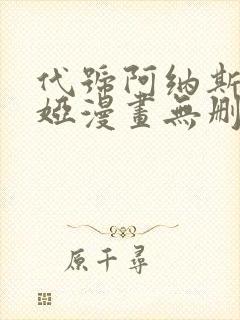 代號阿納斯
婭漫畫無刪
原千尋